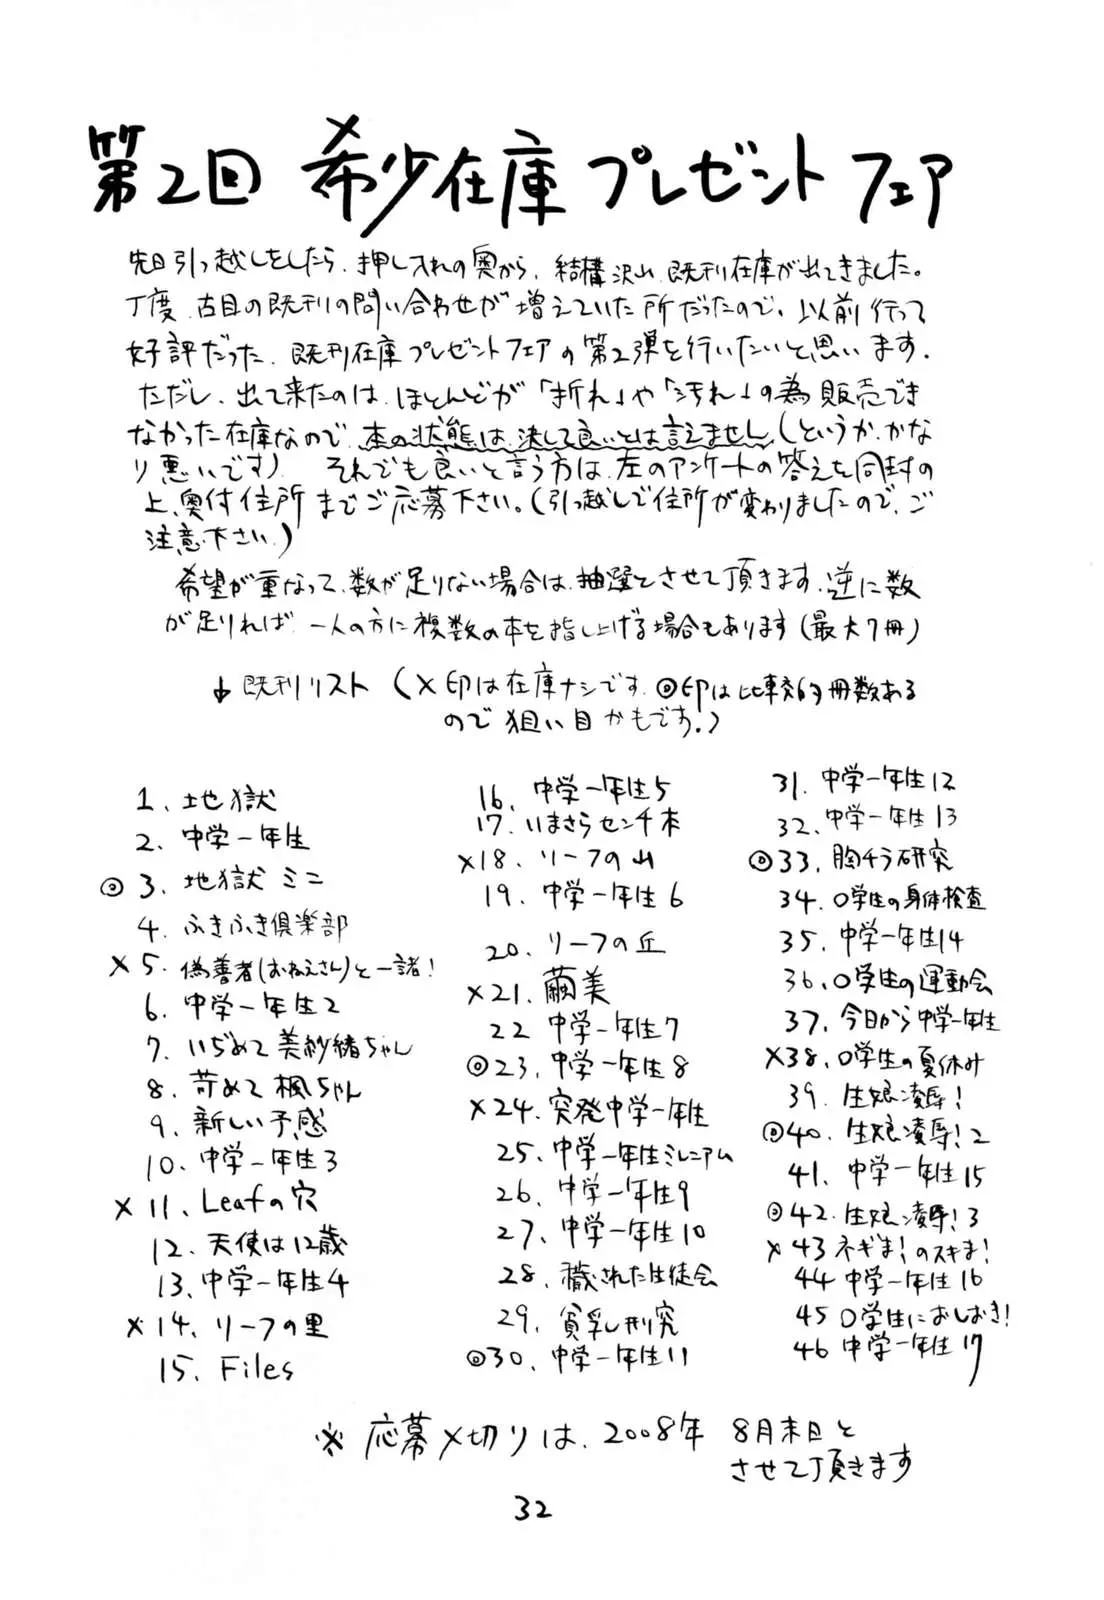 第2回 希少在庫プレゼントフェア
先日引っ越しをしたら、押し入れの奥から、結構沢山、既刊在庫が出てきました。
丁度、古目の既刊の問い合わせが増えていた所だったので、以前行って
好評だった、既刊在庫プレゼントフェアの第2弾を行いたいと思います。
ただし、出て来たのは、ほとんどが「折れ」や「汚れ」の為販売でき
なかった在庫なので、本の状態は、決して良いとは言えません(というか、かな
り悪いです)。それでも良いと言う方は、左のアンケートの答えを同封の
上、奥付住所までご応募下さい。(引っ越しで住所が変わりましたので、ご
注意下さい。)
希望が重なって、数が足りない場合は、抽選とさせて頂きます。逆に数
が足りれば、一人の方に複数の本を差し上げる場合もあります(最大7冊)
↓既刊リスト (×印は在庫ナシです。◎印は比較的冊数ある
ので狙い目かもです。)
1. 地獄
2. 中学一年生
◎3. 地獄ミニ
4. ふきふき倶楽部
×5. 偽善者(おねえさん)と一諸!
6. 中学一年生2
7. いぢめて美紗緒ちゃん
8. 苛めて楓ちゃん
9. 新しい予感
10. 中学一年生3
×11. Leafの穴
12. 天使は12歳
13. 中学一年生4
×14. リーフの里
15. Files
16. 中学一年生5
17. いまさらセンチ本
×18. リーフの山
19. 中学一年生6
20. リーフの丘
×21. 繭美
22 中学一年生7
◎23. 中学一年生8
×24. 突発中学一年生
25. 中学一年生ミレニアム
26. 中学一年生9
27. 中学一年生10
28. 穢された生徒会
29. 貧乳研究
◎30. 中学一年生11
31. 中学一年生12
32. 中学一年生13
◎33. 胸チラ研究
34. 〇学生の身体検査
35. 中学一年生14
36. 〇学生の運動会
37. 今日から中学一年生
×38. 〇学生の夏休み
39. 生娘凌辱!
◎40. 生娘凌辱!2
41. 中学一年生15
◎42. 生娘凌辱!3
×43 ネギま!のスキま!
44 中学一年生16
45 〇学生におしおき!
46 中学一年生17
※応募〆切りは、2008年 8月末日と
させて頂きます
32